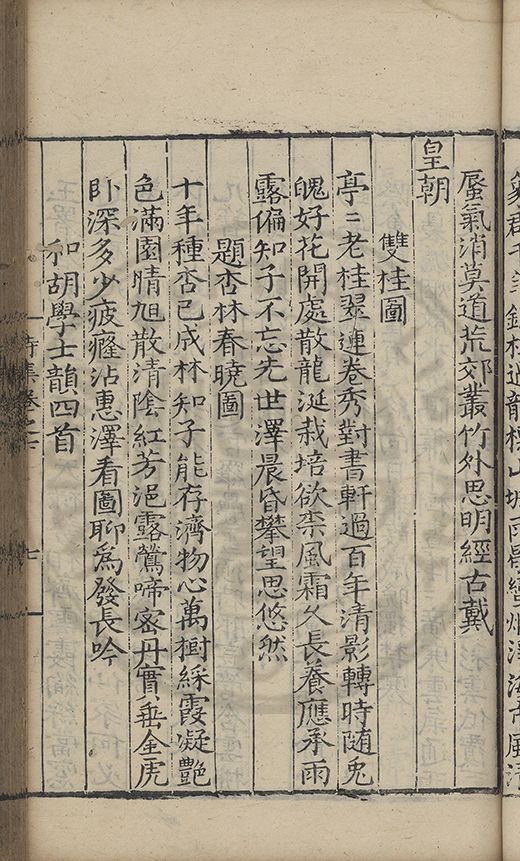 蜃氣消莫道荒郊叢竹外思明經古戴
皇朝
雙桂圖
亭〻老桂翠連卷秀對書軒過百年清影轉時隨兔
魄好花開處散龍涎栽培欲柰風霜久長養應承雨
露偏知子不忘先世澤晨昏攀望思悠然
題杏林春曉圖
十年種杏已成林知子能存濟物心萬樹綵霞凝艷
色滿園情旭散清陰紅芳浥露鶯啼密丹實垂金虎
卧深多少疲癃沾惠澤看圖聊爲發長吟
和胡學士韻四首